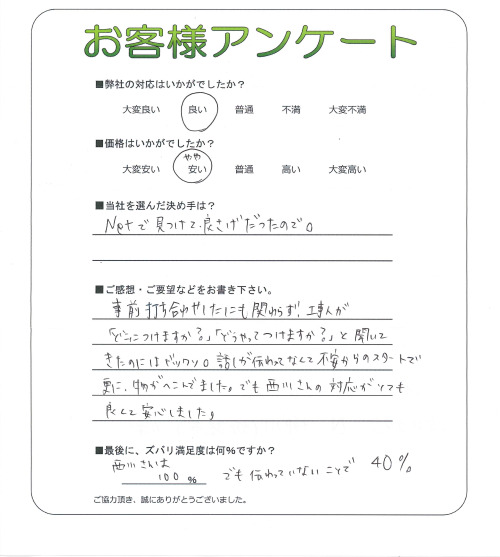 お客様アンケート
■弊社の対応はいかがでしたか?
大変良い 良い 普通 不満 大変不満
■価格はいかがでしたか?
やや
大変安い 安い 普通 高い 大変高い
■当社を選んだ決め手は?
Netで見つけて、良さげだったので。
■ご感想・ご要望などをお書き下さい。
事前打ち合わせしたにも関わらず、工事人が
「どこにつけますか?」「どうやってつけますか?」と聞いて
きたのにはビックリ。話しが伝わってなくて不安からのスタートで
更に、物がへこんでました。でも西川さんの対応がとても
良くて安心しました。
■最後に、ズバリ満足度は何%ですか?
西川さんは
100 % でも伝わっていないことで 40%
ご協力頂き、誠にありがとうございました。